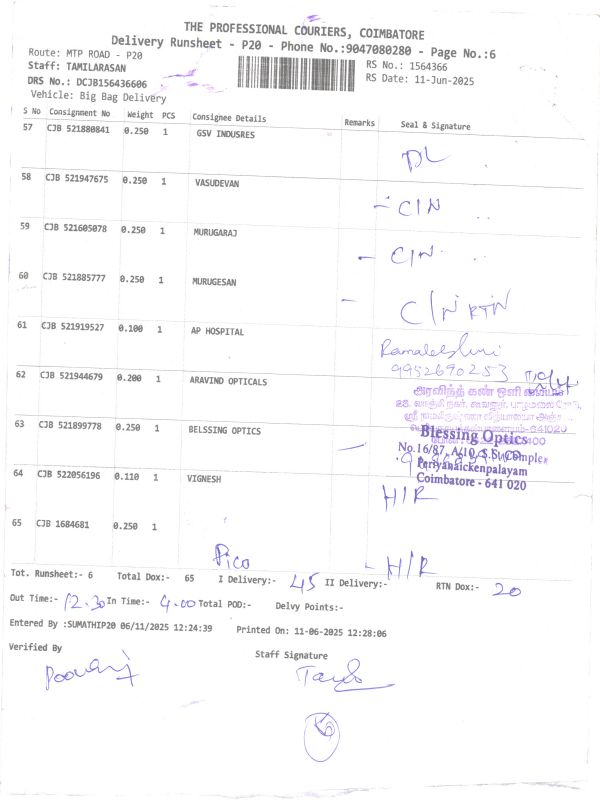 THE PROFESSIONAL COURIERS, COIMBATORE
Delivery Runsheet - P20 - Phone No.:9047080280 - Page No.:6
Route: MTP ROAD - P20 RS No.: 1564366
Staff: TAMILARASAN RS Date: 11-Jun-2025
DRS No.: DCJB156436606
Vehicle: Big Bag Delivery
S No Consignment No Weight PCS Consignee Details Remarks Seal & Signature
57 CJB 521880841 0.250 1 GSV INDUSRES DL
58 CJB 521947675 0.250 1 VASUDEVAN - C/N
59 CJB 521605078 0.250 1 MURUGARAJ - C/N
60 CJB 521885777 0.250 1 MURUGESAN - C/N RTN
61 CJB 521919527 0.100 1 AP HOSPITAL
9952690253
62 CJB 521944679 0.200 1 ARAVIND OPTICALS
அரவிந்த் கண் ஒளி மையம்
63 CJB 521899778 0.250 1 BELSSING OPTICS
Blessing Optics
No.16/87, A/10, S.S. Complex
Periyanaickenpalayam
Coimbatore - 641 020
64 CJB 522056196 0.110 1 VIGNESH H/R
65 CJB 1684681 0.250 1 Pico - H/R
Tot. Runsheet:- 6 Total Dox:- 65 I Delivery:- 45 II Delivery:- RTN Dox:- 20
Out Time:- 12.30 In Time:- 4.00 Total POD:- Delvy Points:-
Entered By :SUMATHIP20 06/11/2025 12:24:39 Printed On: 11-06-2025 12:28:06
Verified By Staff Signature